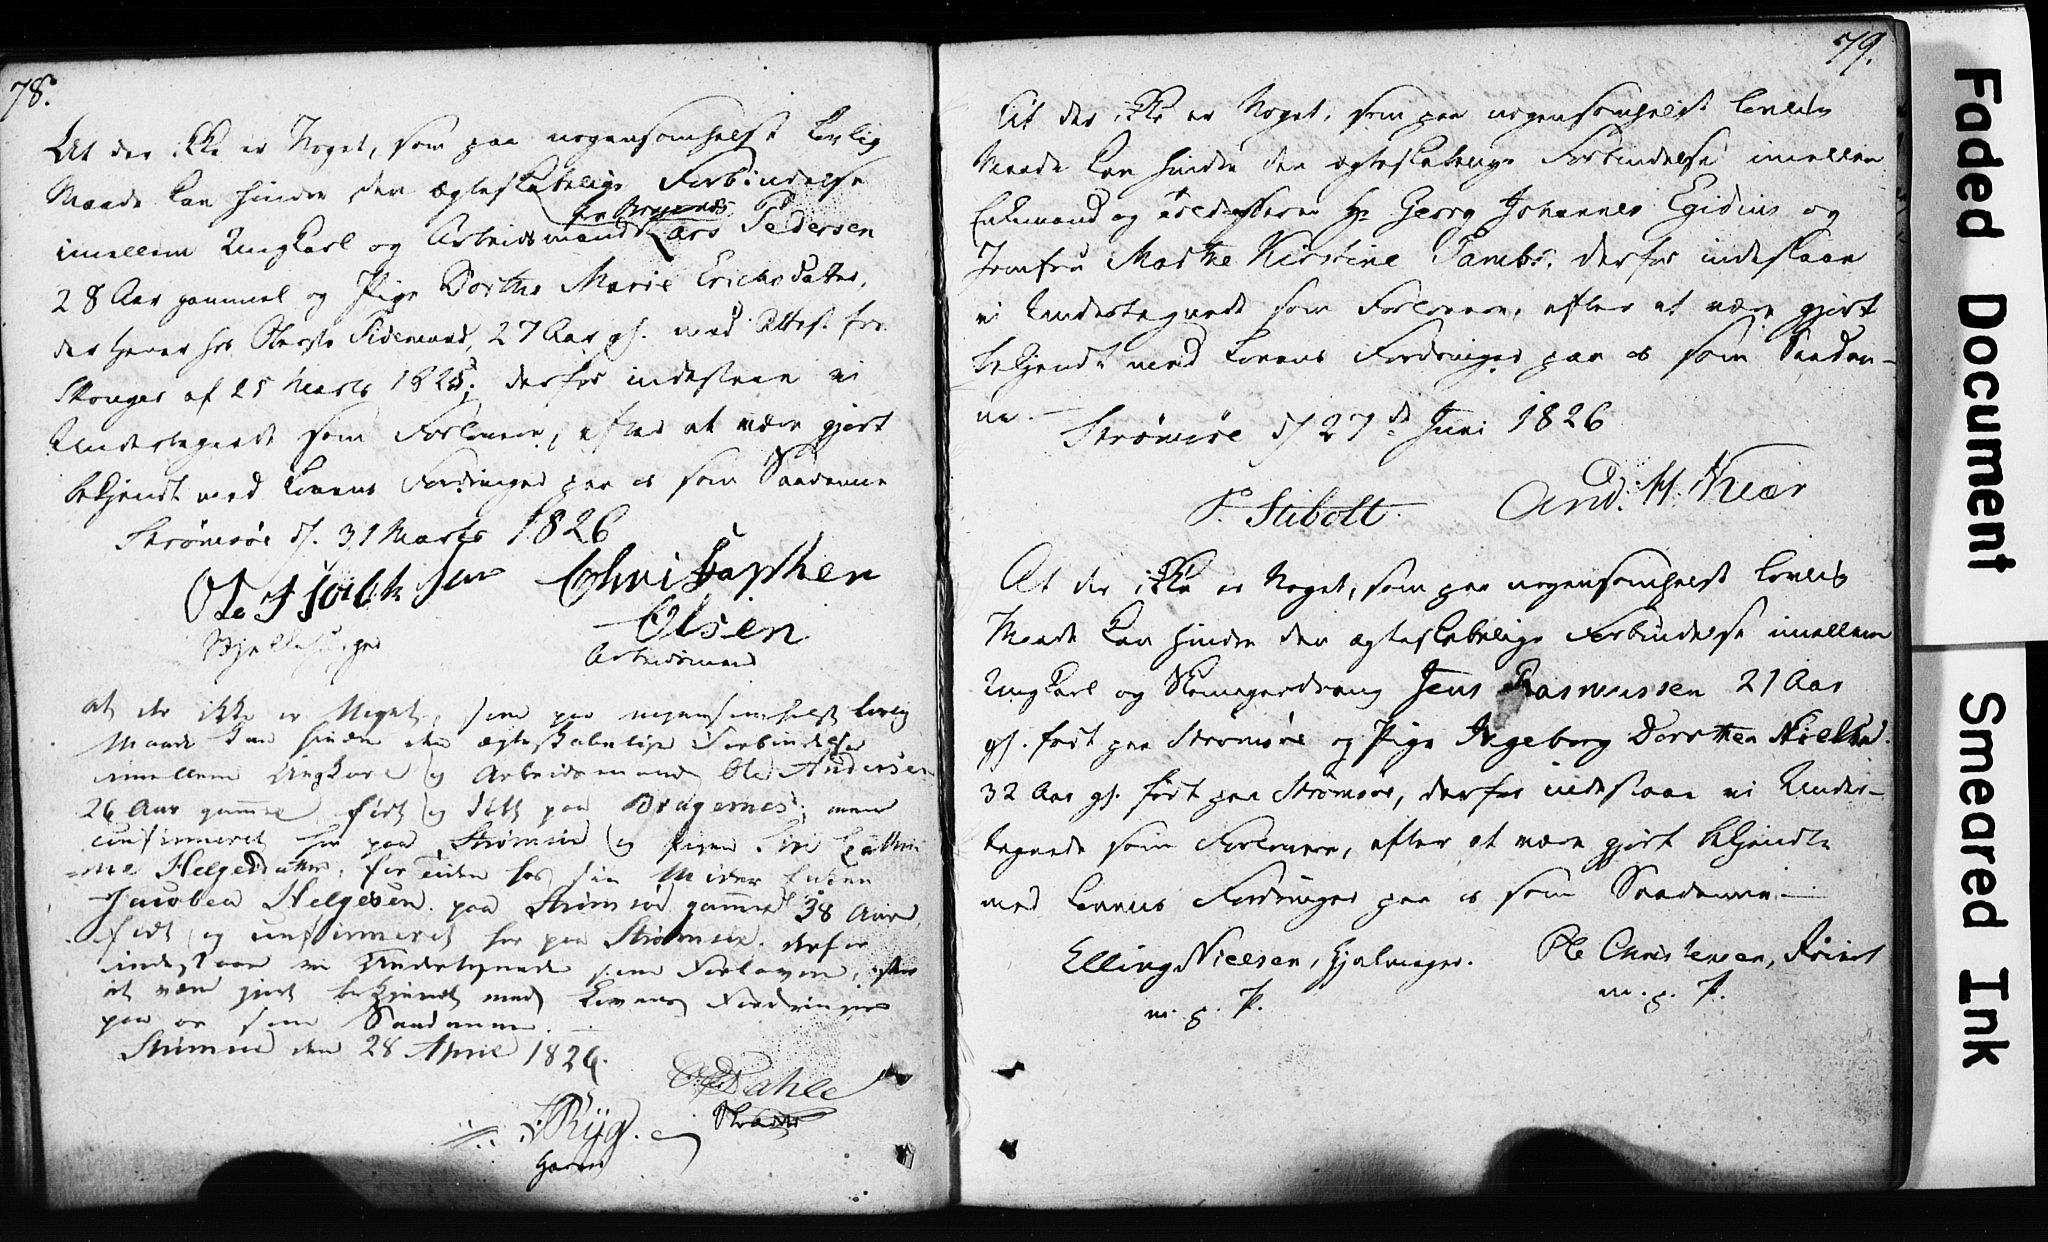 78.
At der ikke er Noget, som paa nogensomhelst lovlig
Maade kan hindre den ægteskabelige Forbindelse
imellem Ungkarl og Arbeidsmand Lars Pedersen
28 Aar gammel og Pige Dorthe Marie Erichsdatter,
27 Aar gl. med Attest fra
Skouger af 25 Marts 1825; derfor indestaae vi
Undertegnede som Forlovere, efter at være gjort
bekjendt med Lovens Fordringer paa os som Saadanne
Strømsøe d. 31 Marts 1826
Christopher
Olsen
Arbeidsmand
at der ikke er Noget, som paa nogensomhelst lovlig
Maade kan hindre den ægteskabelige Forbindelse
imellem Ungkarl og Arbeidsmand Ole Andersen
26 Aar gammel, født og paa Bragernes, men
confirmeret her paa Strømsøe og Pigen
Helgesdatter, for tiden hos sin Moder Enken
Jacobea Helgesen paa Strømsøe gammel 38 Aar,
født og confirmeret her paa Strømsøe. derfor
indestaae vi Undertegnede som Forlovere, efter
at være gjort bekjendt med Lovens Fordringer
paa os som Saadanne.
Strømsøe den 28 April 1826.
Dahle
Ryg.
79.
At der ikke er Noget, som paa nogensomhelst lovlig
Maade kan hindre den ægteskabelige Forbindelse imellem
Enkemand og Hr Georg Johannes Egidius og
Jomfru Marthe Kirstine Tambs, derfor indestaae
vi Undertegnede som Forlovere, efter at være gjort
bekjendt med Lovens Fordringer paa os som Saadan-
ne.—
Strømsøe d/ 27de Juni 1826
P. Stibolt. And. H. Kiær
At der ikke er Noget, som paa nogensomhelst lovlig
Maade kan hindre den ægteskabelige Forbindelse imellem
Ungkarl og Jens Rasmussen 21 Aar
gl. født paa Strømsøe og Pige Ingeborg Dorothea Nielsd.
32 Aar gl. født paa Strømsøe, derfor indestaae vi Under-
tegnede som Forlovere, efter at være gjort bekjendte
med Lovens Fordringer paa os som Saadanne.—
Elling Nielsen, Ole Christensen,
m. p. P. m. p. P.
Faded Document
Smeared Ink